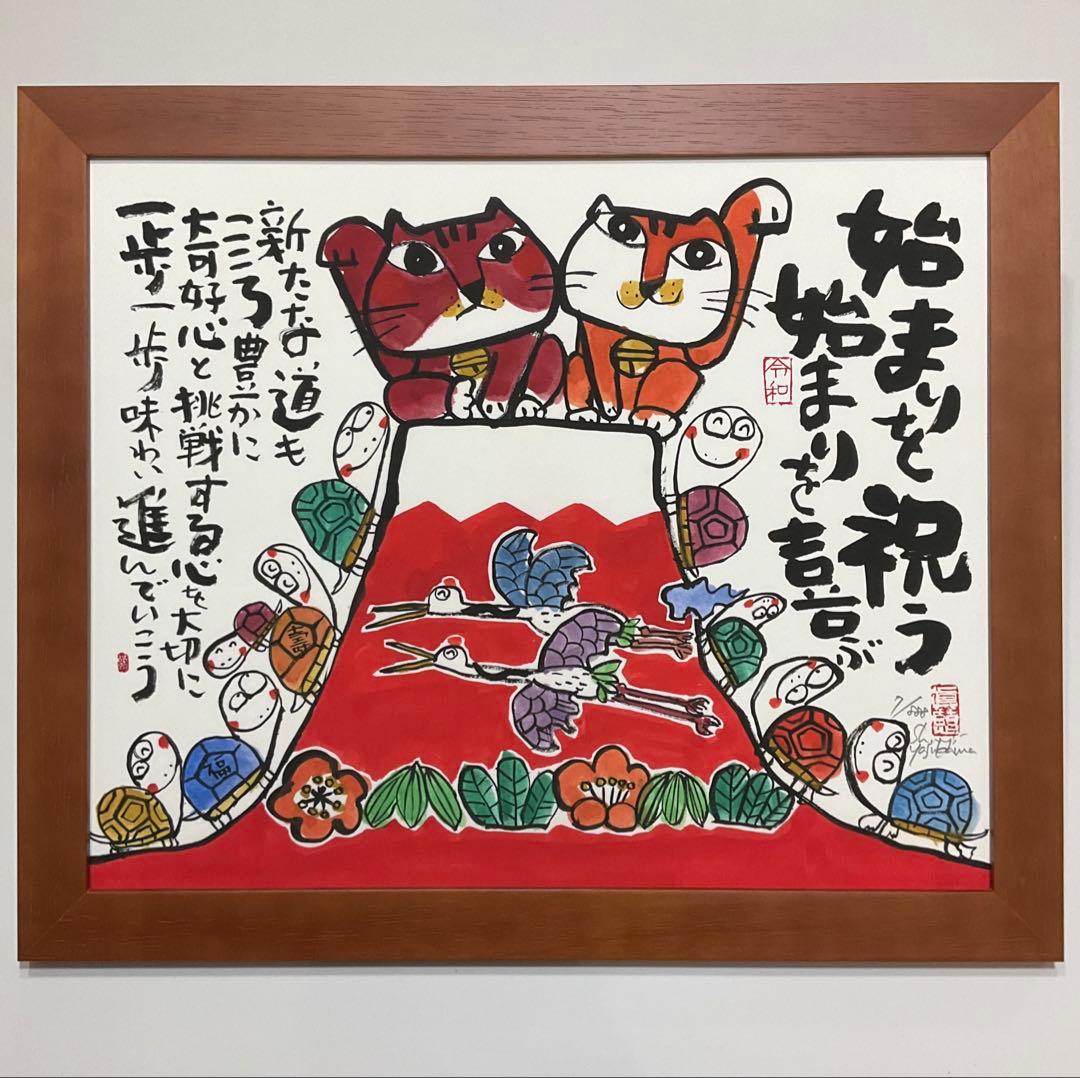 始まりを祝う
始まりを喜ぶ
令和
新たな道も
こころ豊かに
奇好心と挑戦する心を大切に
一歩一歩味わい進んでいこう
寿
福
7/888